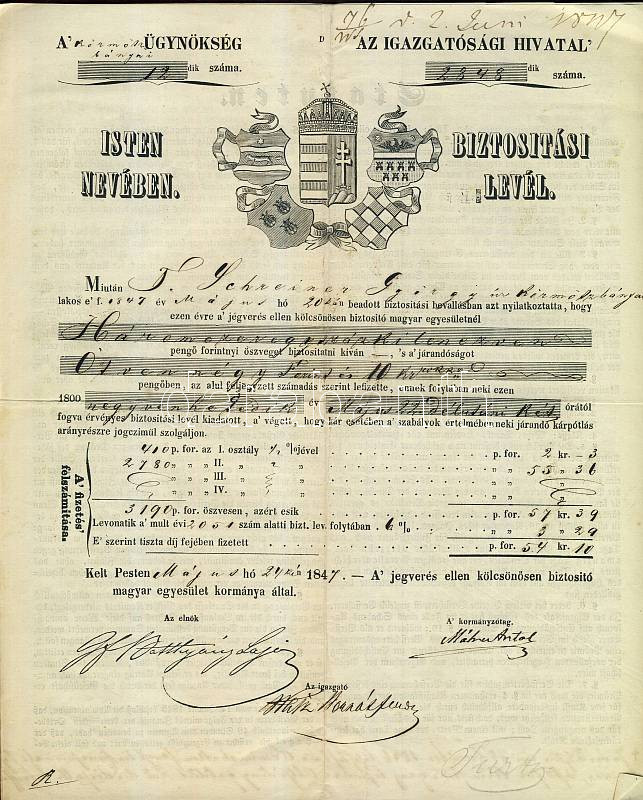 d. 2. Juni 1847
A' Körmöczbányai ÜGYNÖKSÉG
12 dik száma.
AZ IGAZGATÓSÁGI HIVATAL'
2848 dik száma.
ISTEN NEVÉBEN.
BIZTOSITÁSI LEVÉL.
Miután T. Schreiner György úr Körmötzbányai
lakos e' f. 1847 év Május hó 20kán beadott biztositási bevallásban azt nyilatkoztatta, hogy
ezen évre a' jégverés ellen kölcsönösen biztositó magyar egyesületnél
Háromezeregyszázkilenczven
pengő forintnyi összeget biztositatni kíván —, 's a' járandóságot
Ötven négy Forint 10 kr
pengőben, az alul feljegyzett számadás szerint lefizette, ennek folytában neki ezen
1800 negyvenhetedik év Május 22 délutáni két órától
fogva érvényes biztositási levél kiadatott, a' végett, hogy kár esetében a' szabályok értelmében neki járandó kárpótlás
arányrészre jogczimül szolgáljon.
A' fizetés' felszámitása.
410 p. for. az I. osztály ½ %jével p. for. 2 kr. 3
2780 „ „ „ II. „ 2 „ „ „ 55 „ 36
„ „ „ III. „ „ „ „
„ „ „ IV. „ „ „ „
3190 p. for. öszvesen, azért esik p. for. 57 kr. 39
Levonatik a' mult évi 2051 szám alatti bizt. lev. folytában 6 % „ „ 3 „ 29
E' szerint tiszta díj fejében fizetett p. for. 54 kr. 10
Kelt Pesten Május hó 24kén 1847. — A' jegverés ellen kölcsönösen biztositó
magyar egyesület kormánya által.
Az elnök
A' kormányzótag.
Gf Batthyány Lajos
Az igazgató
R.